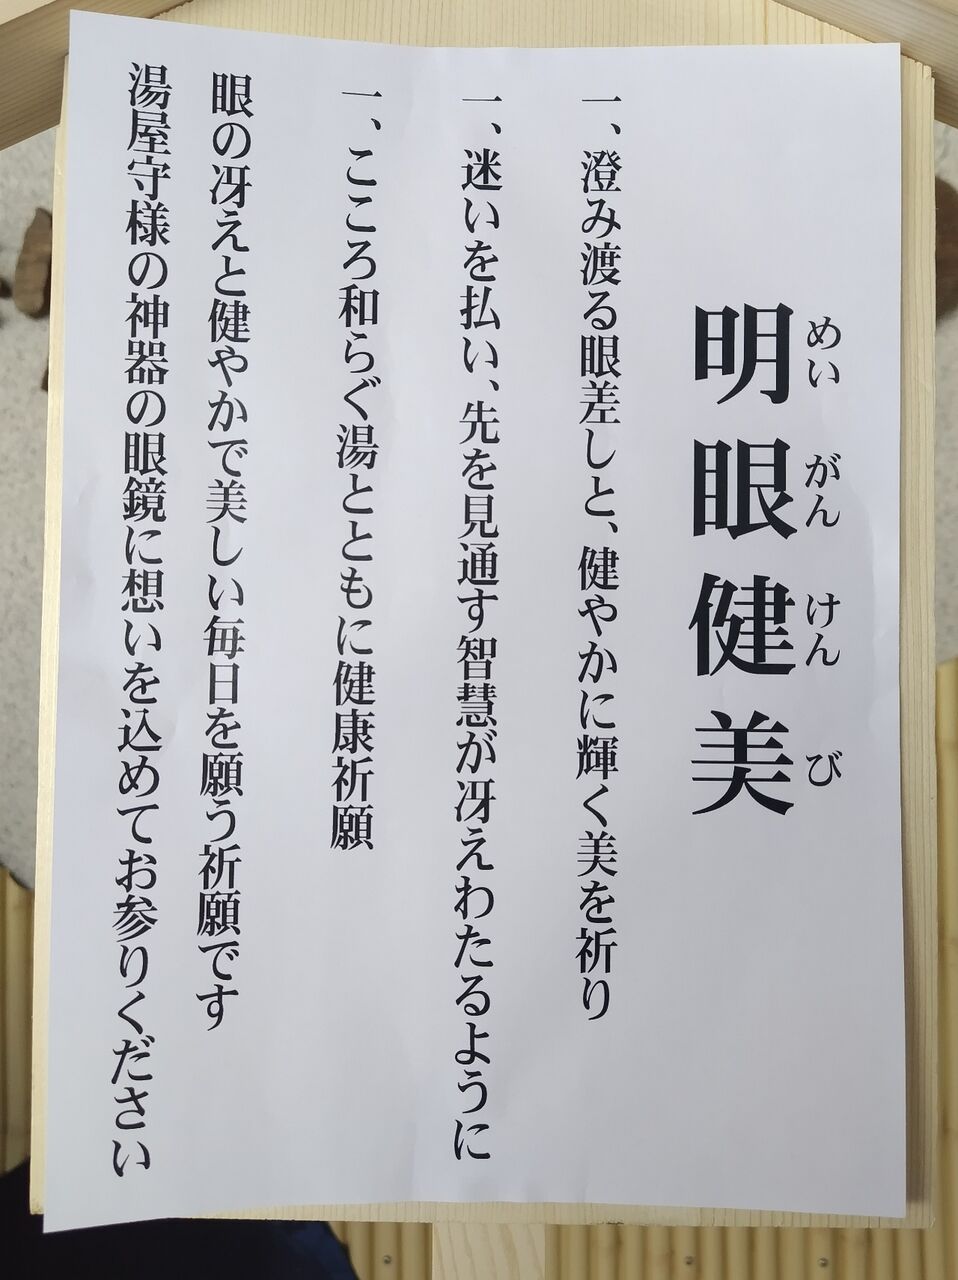 明眼健美
めいがんけんび
一、澄み渡る眼差しと、健やかに輝く美を祈り
一、迷いを払い、先を見通す智慧が冴えわたるように
一、こころ和らぐ湯とともに健康祈願
眼の冴えと健やかで美しい毎日を願う祈願です
湯屋守様の神器の眼鏡に想いを込めてお参りください